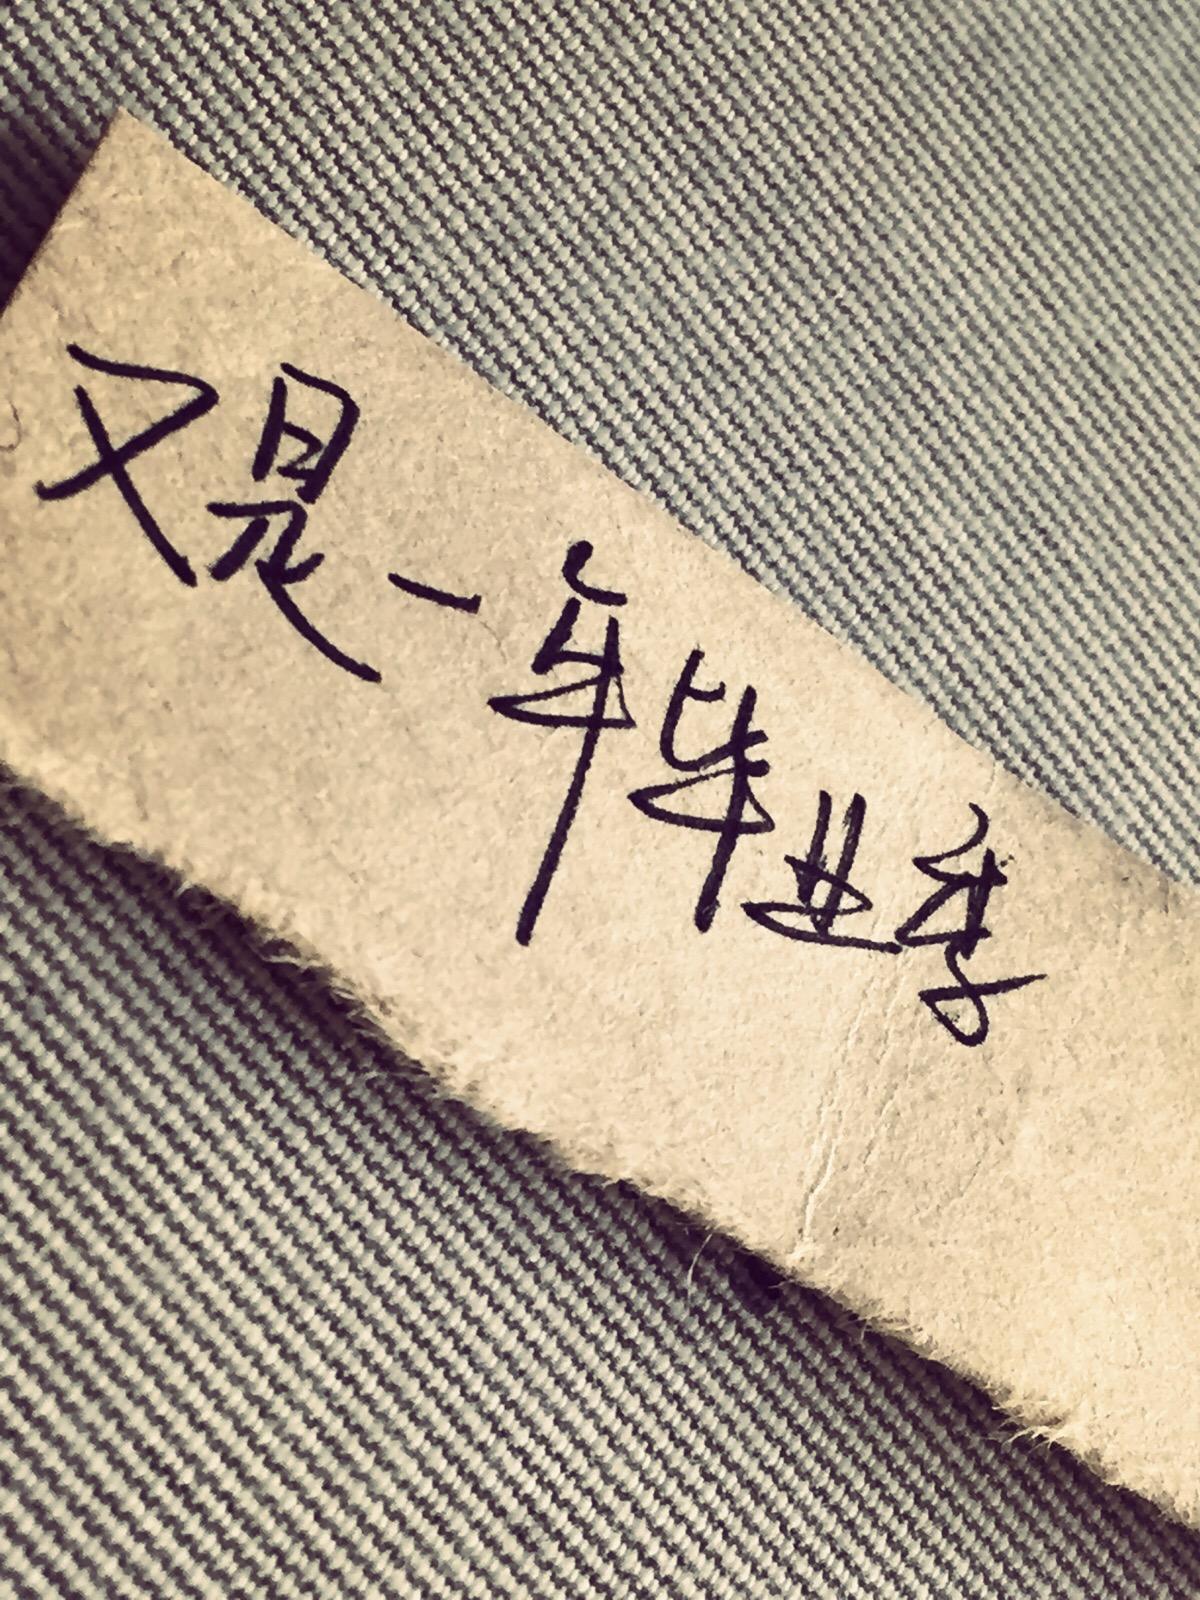 又是一年毕业季